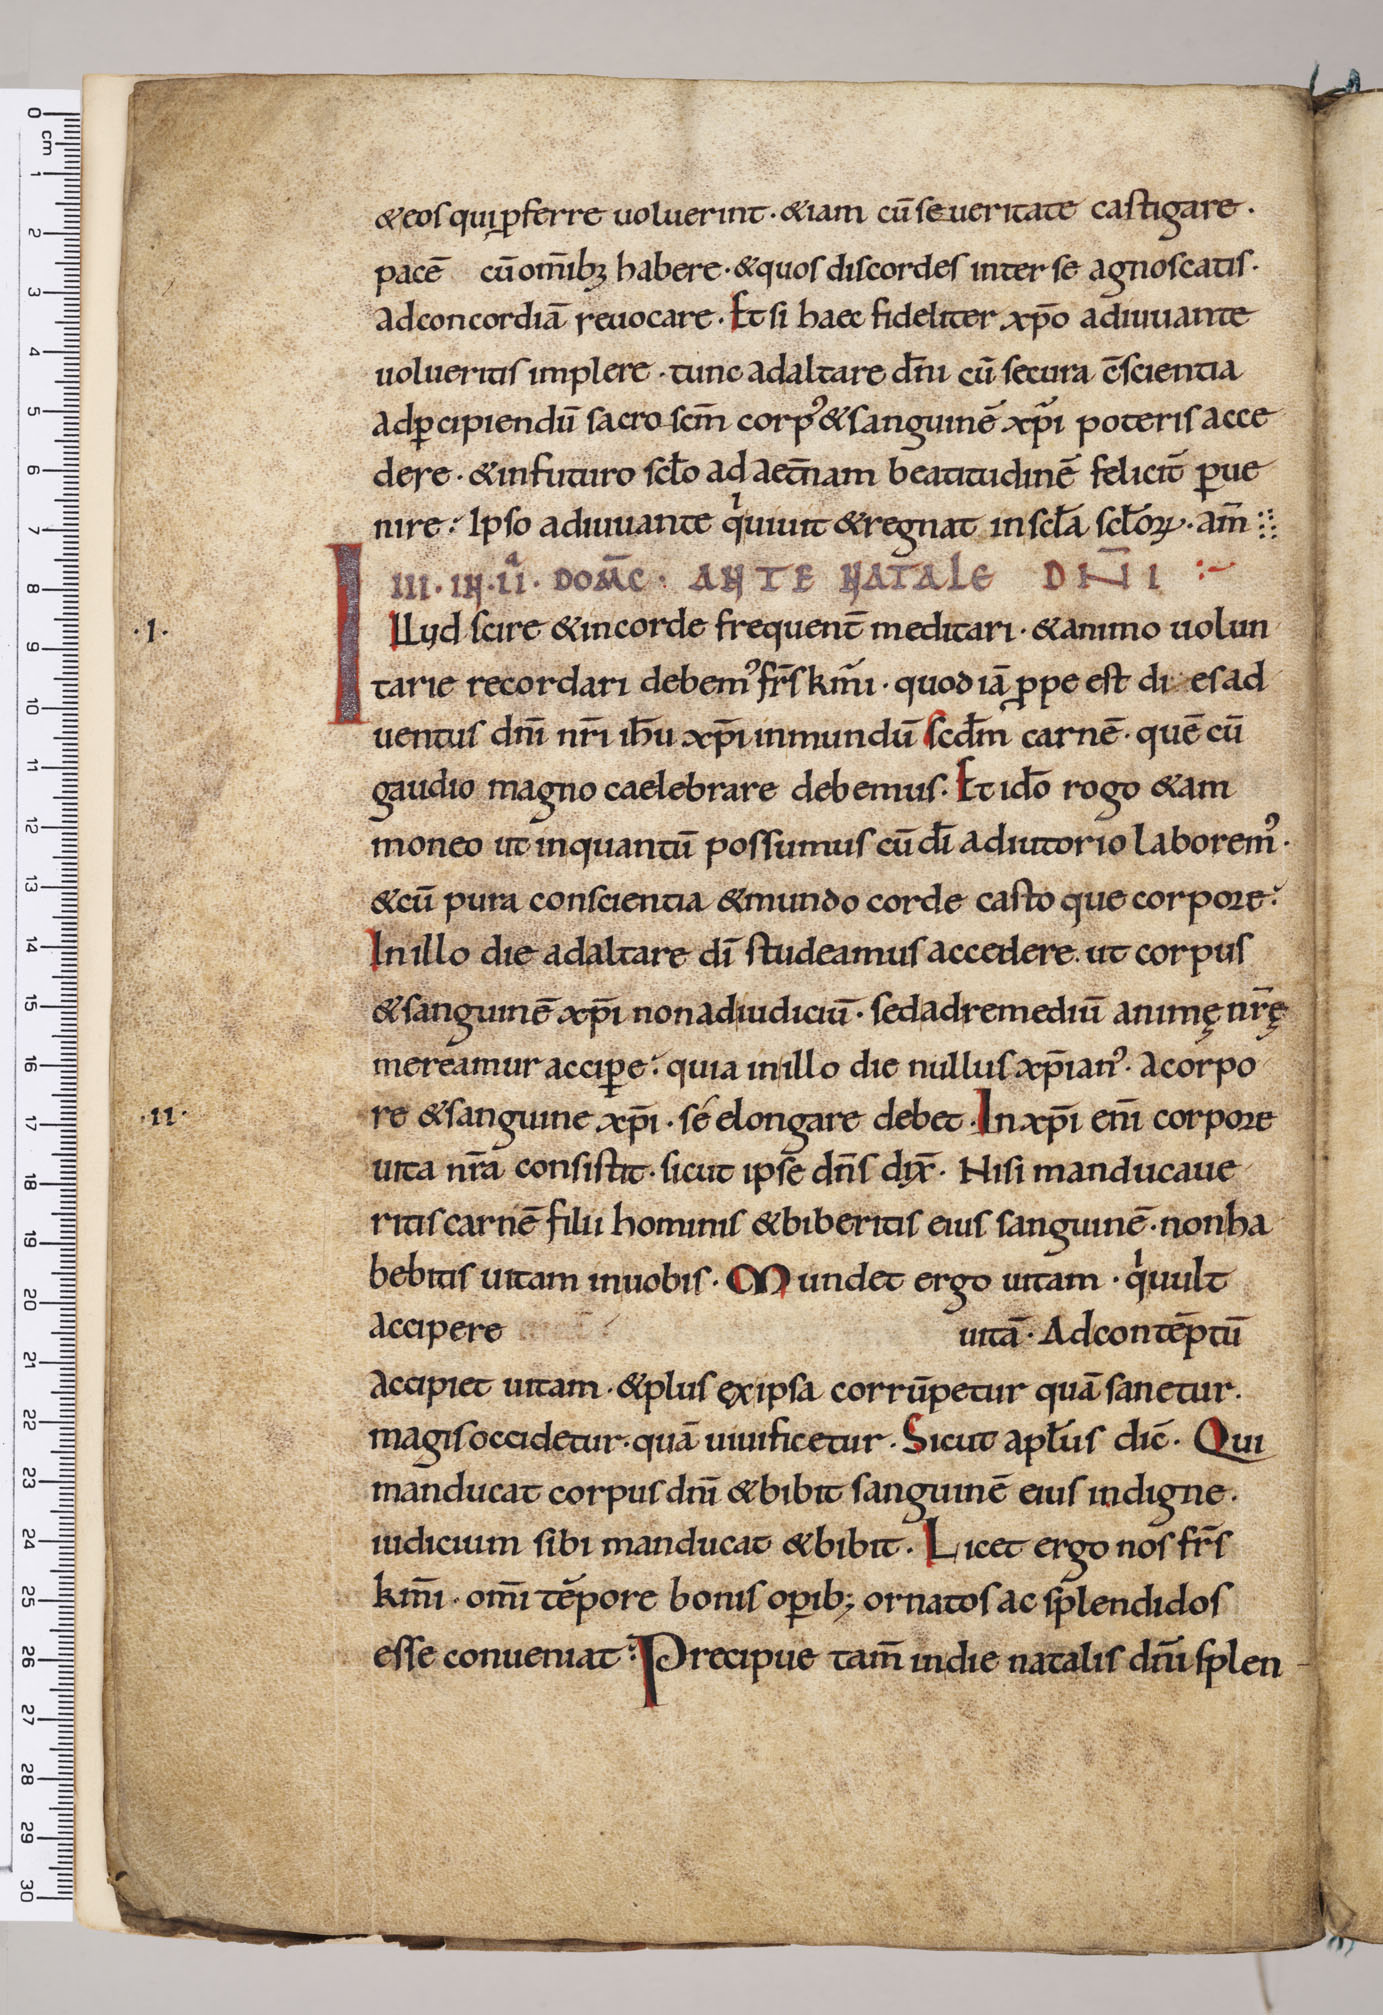 &eos qui ꝑferre uoluerint · &iam cū seueritate castigare ·
pacē cū om̄ibꝫ habere · &quos discordes inter se agnoscatis ·
adconcordiā reuocare · Et si haec fideliter xp̄o adiuuante
uolueritis implere · tunc adaltare dn̄i cū secura c̄scientia
adꝑcipiendū sacro scm̄ corpꝰ &sanguinē xp̄i poteris acce
dere · &infuturo scl̄o ad aet̄nam beatitudinē felicit̄ ꝑue
nire · Ipso adiuuante qͥ uiuit &regnat inscl̄a scl̄oꝝ · am̄
III · IN · IIᵃ · DOM̄C · ANTE NATALE DN̄I
·I·
ILLud scire &incorde frequent̄ meditari · &animo uolun
tarie recordari debemꝰ fr̄s km̄i · quod iā ꝓpe est di es ad
uentus dn̄i nr̄i ih̄u xp̄i inmundū scd̄m carnē · quē cū
gaudio magno caelebrare debemus · Et id̄o rogo &am
moneo ut inquantū possumus cū dī adiutorio laboremꝰ ·
&cū pura conscientia &mundo corde casto que corpore ·
In illo die adaltare dī studeamus accedere · ut corpus
&sanguinē xp̄i non adiudiciū · sed adremediū animę nr̄ę
mereamur acciꝑe · quia in illo die nullus xp̄ianꝰ · a corpo
·II·
re &sanguine xp̄i · sé elongare debet · In xp̄i eni̅ corpore
uita nr̄a consistit · sicut ipse dn̄s dix̄ · Nisi manducaue
ritis carnē filii hominis &biberitis eius sanguinē · non ha
bebitis uitam inuobis · Mundet ergo uitam · qͥ uult
accipere uitā · Adcontēptū
accipiet uitam · &plus ex ipsa corrūpetur quā sanetur ·
magis occidetur · quā uiuificetur · Sicut apl̄us dic̄ · Qui
manducat corpus dn̄i &bibit sanguinē eius indigne ·
iudicium sibi manducat &bibit · Licet ergo nos fr̄s
km̄i · om̄i tēpore bonis oꝑib; ornatos ac splendidos
esse conueniat · Precipue tam̄ indie natalis dn̄i splen